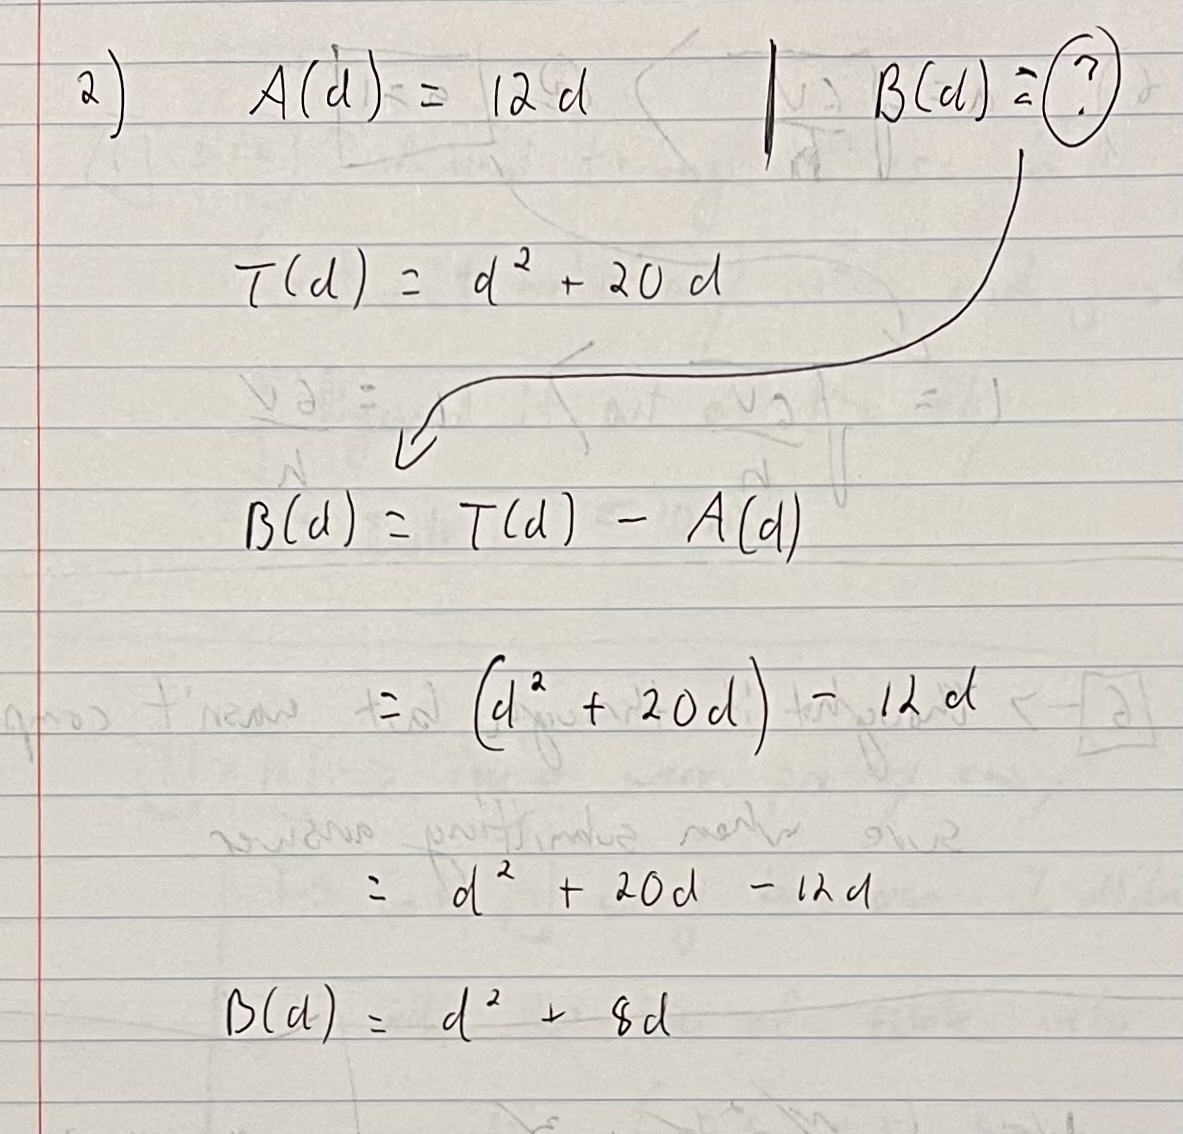 2) A(d) = 12d | B(d) = ?
T(d) = d² + 20d
B(d) = T(d) - A(d)
= (d² + 20d) - 12d
= d² + 20d - 12d
B(d) = d² + 8d